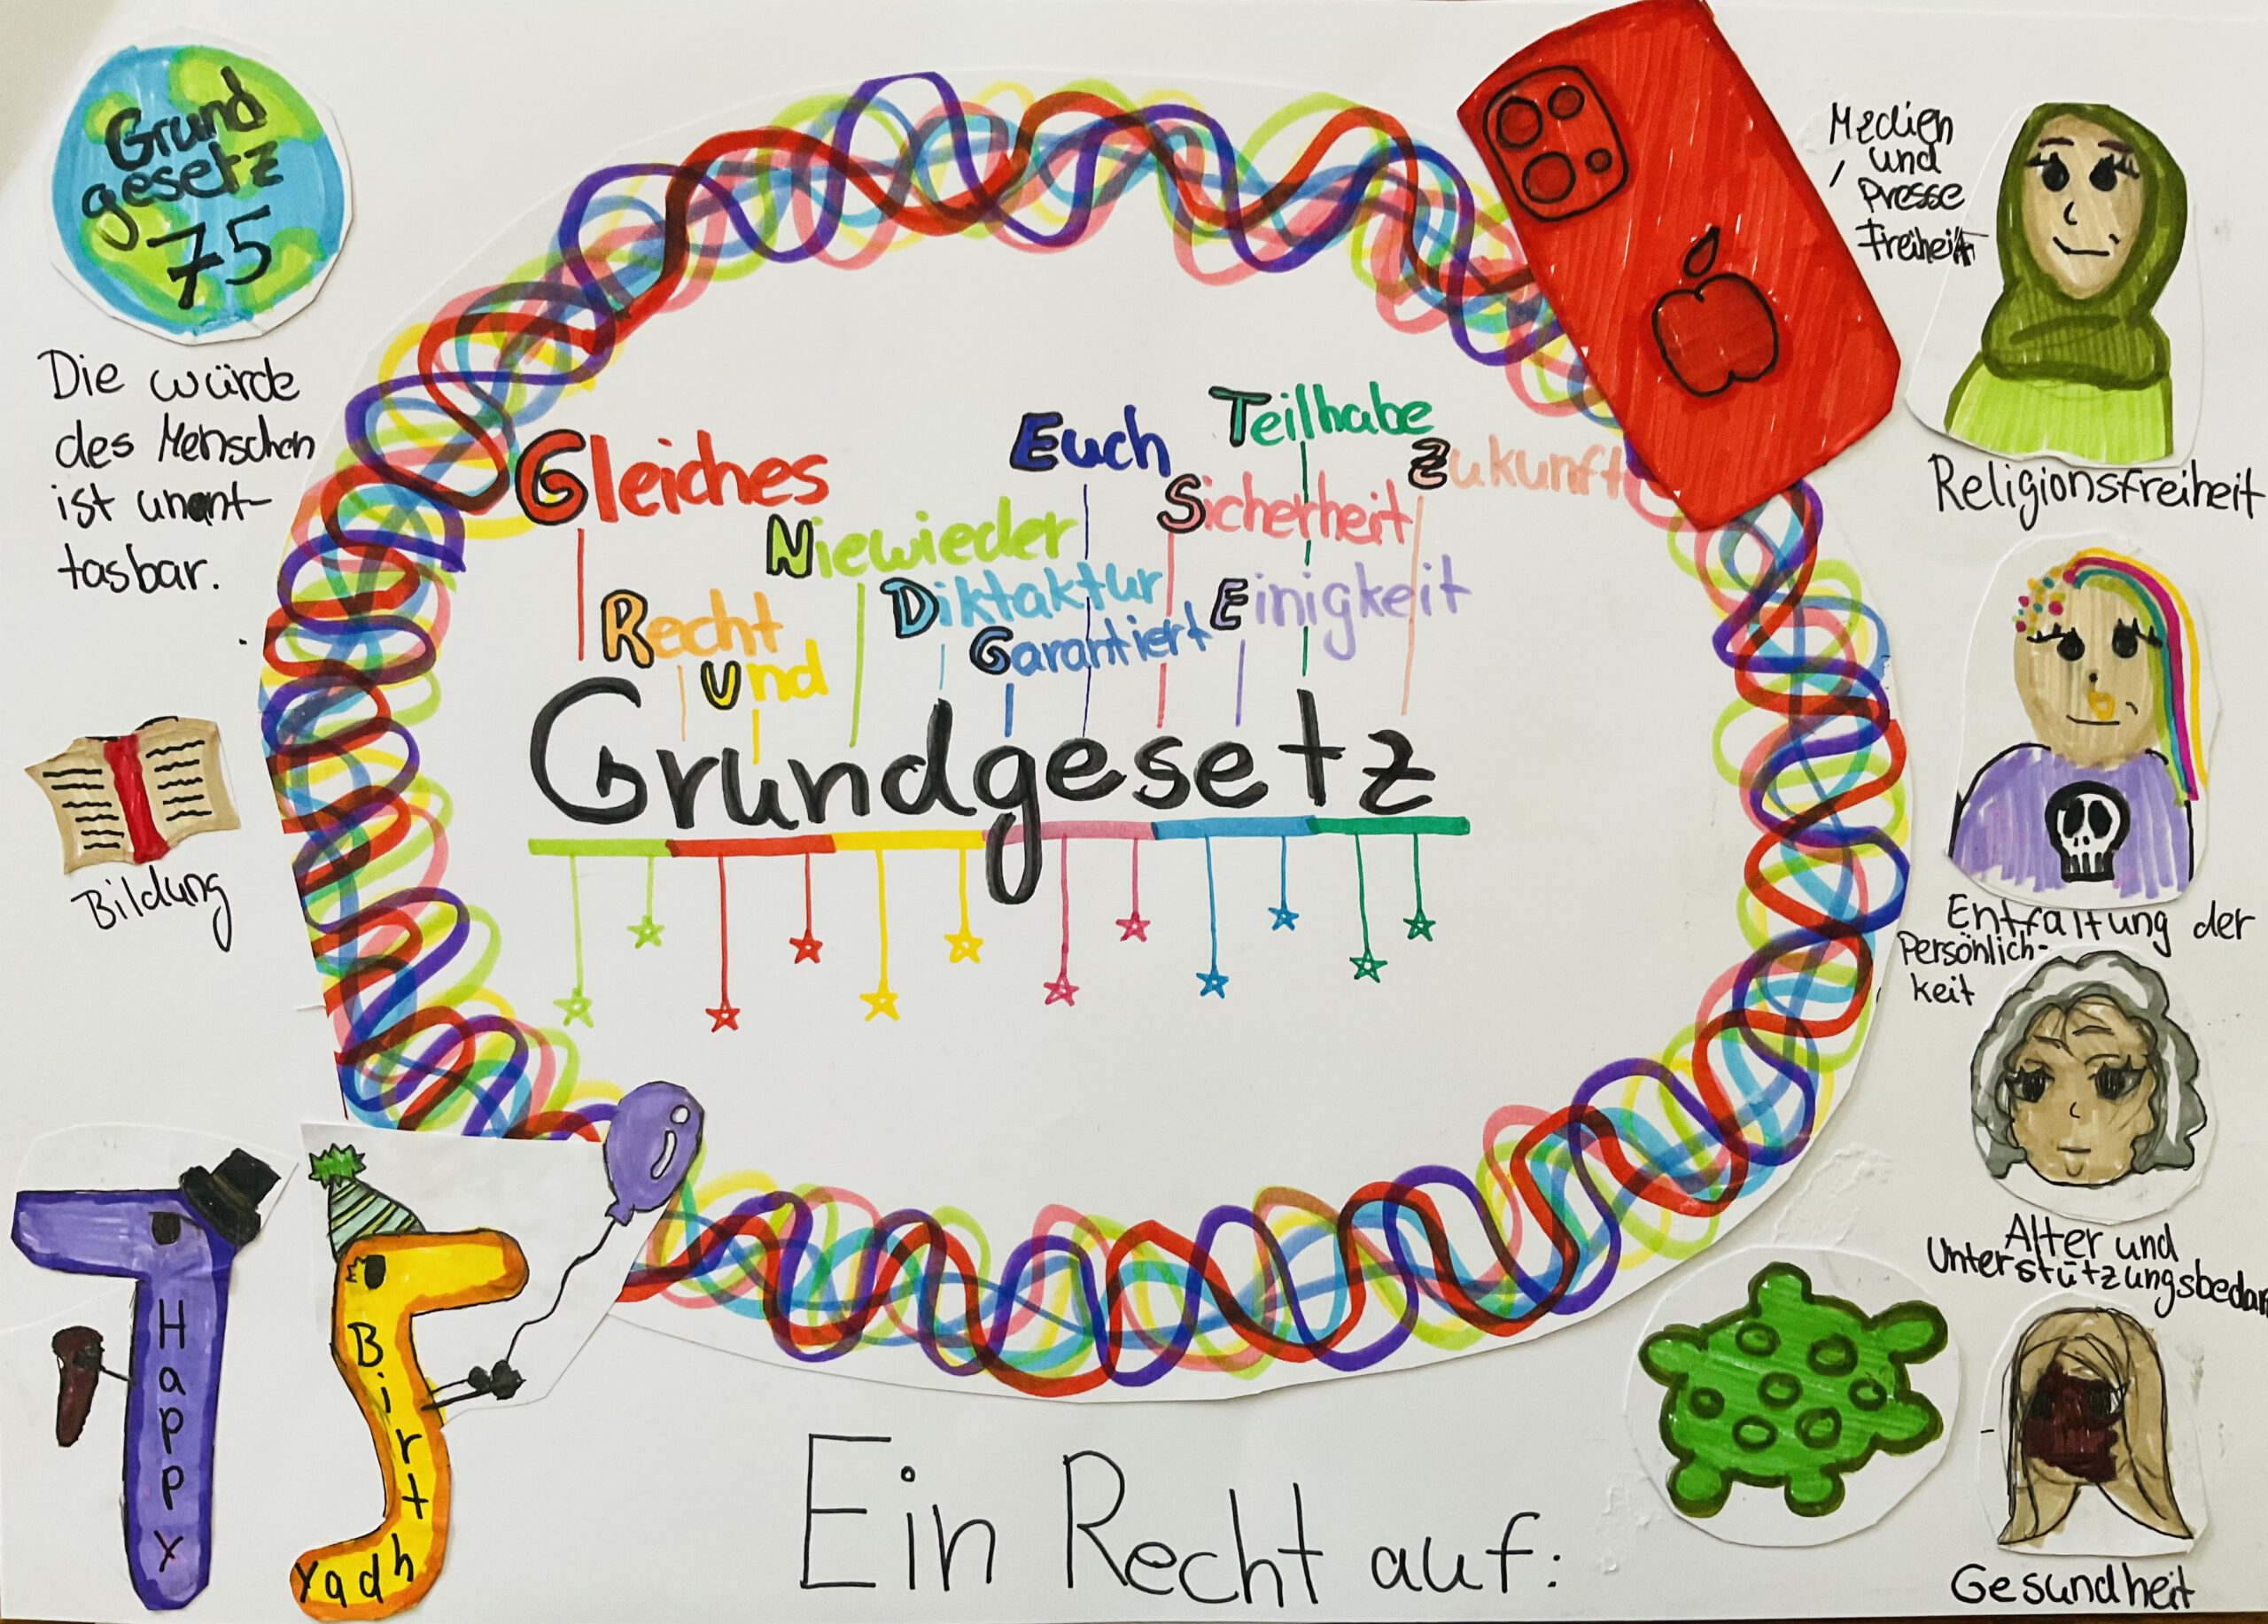 Grund
gesetz
75
Die würde
des Menschen
ist unant-
tasbar.
Bildung
Happy
Birthday
Gleiches
Recht
Und
Niewieder
Diktaktur
Garantiert
Euch
Sicherheit
Einigkeit
Teilhabe
Zukunft
Grundgesetz
Medien
und
Presse
Freiheit
Religionsfreiheit
Entfaltung der
Persönlich-
keit
Alter und
Unterstützungsbedarf
Gesundheit
Ein Recht auf: